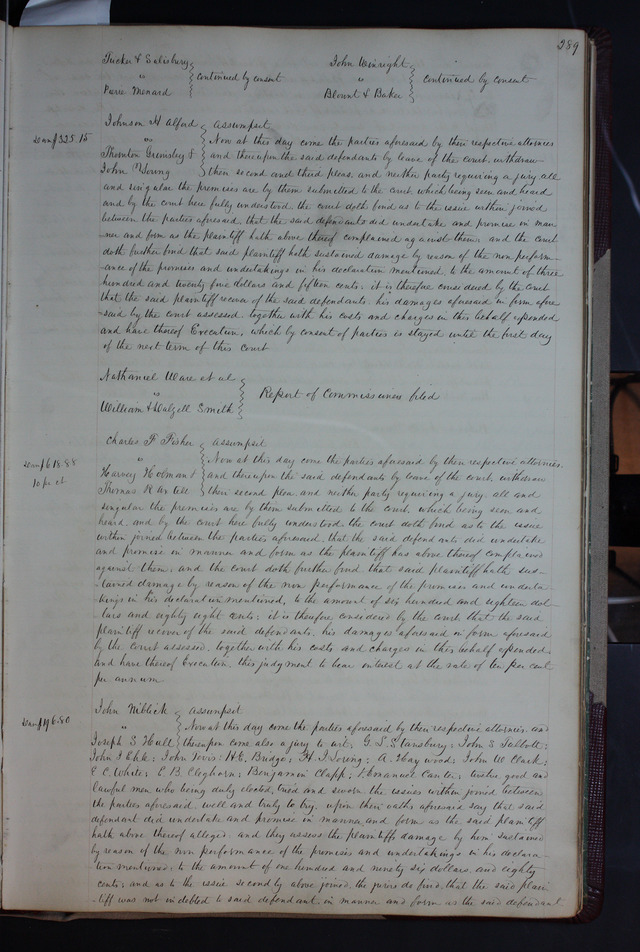 289
Tucker & Salisbury
vs continued by consent
Pierre Menard
John Winright
vs continued by consent
Blount & Baker
Johnson H Alford assumpsit
Dam $325.15
vs Now at this day come the parties aforesaid by their respective attornies
Thornton Grimsley & and thereupon the said defendants by leave of the court withdraw
John Young their second and third pleas, and neither party requiring a jury, all
and singular the premises are by them submitted to the court which being seen and heard
and by the court here fully understood the court doth find as to the issue within joined
between the parties aforesaid, that the said defendants did undertake and promise in man
ner and form as the plaintiff hath above thereof complained against them; and the court
doth further find that said plaintiff hath sustained damage by reason of the non perform-
ance of the promises and undertakings in his declaration mentioned, to the amount of three
hundred and twenty five dollars and fifteen cents: it is therefore considered by the court
that the said plaintiff recover of the said defendants his damages aforesaid in form afore
said by the court assessed together with his costs and charges in this behalf expended
and have thereof Execution, which by consent of parties is stayed until the first day
of the next term of this court
Nathaniel Ware et al
vs Report of Commissioners filed
William Dalzell Smith
Charles F Fisher assumpsit
Dam $618.88
10 pr ct
vs Now at this day come the parties aforesaid by their respective attornies.
Harvey Holman & and thereupon the said defendants by leave of the court withdraw
Thomas R Axtell their second plea, and neither party requiring a jury, all and
singular the premises are by them submitted to the court, which being seen and
heard, and by the court here fully understood, the court doth find as to the issue
within joined between the parties aforesaid, that the said defendants did undertake
and promise in manner and form as the plaintiff has above thereof complained
against them; and the court doth further find that said plaintiff hath sus-
tained damage by reason of the non performance of the promises and underta-
kings in his declaration mentioned, to the amount of six hundred and eighteen dol-
lars and eighty eight cents: it is therefore considered by the court that the said
plaintiff recover of the said defendants, his damages aforesaid in form aforesaid
by the court assessed, together with his costs and charges in this behalf expended
and have thereof Execution, this judgment to bear interest at the rate of ten per cent
per annum
John Niblick assumpsit
Dam $196.80
vs Now at this day come the parties aforesaid by their respective attornies, and
Joseph S Hull thereupon come also a jury to wit; G. S. Stansbury; John S Talbott;
John Jones; H. E. Bridge; H. J. Loring; A. Haywood; John W Clark;
E C. White; E. B. Cleghorn; Benjamin Clapp; Emanuel Canter; twelve good and
lawful men who being duly elected, tried and sworn the issues within joined between
the parties aforesaid well and truly to try, upon their oaths aforesaid say that said
defendant did undertake and promise in manner and form as the said plaintiff
hath above thereof alleged and they assess the plaintiffs damage by him sustained
by reason of the non performance of the promises and undertakings in his declara-
tion mentioned, to the amount of one hundred and ninety six dollars and eighty
cents; and as to the issue secondly above joined, the jurors do find, that the said plain
-tiff was not indebted to said defendant in manner and form as the said defendant